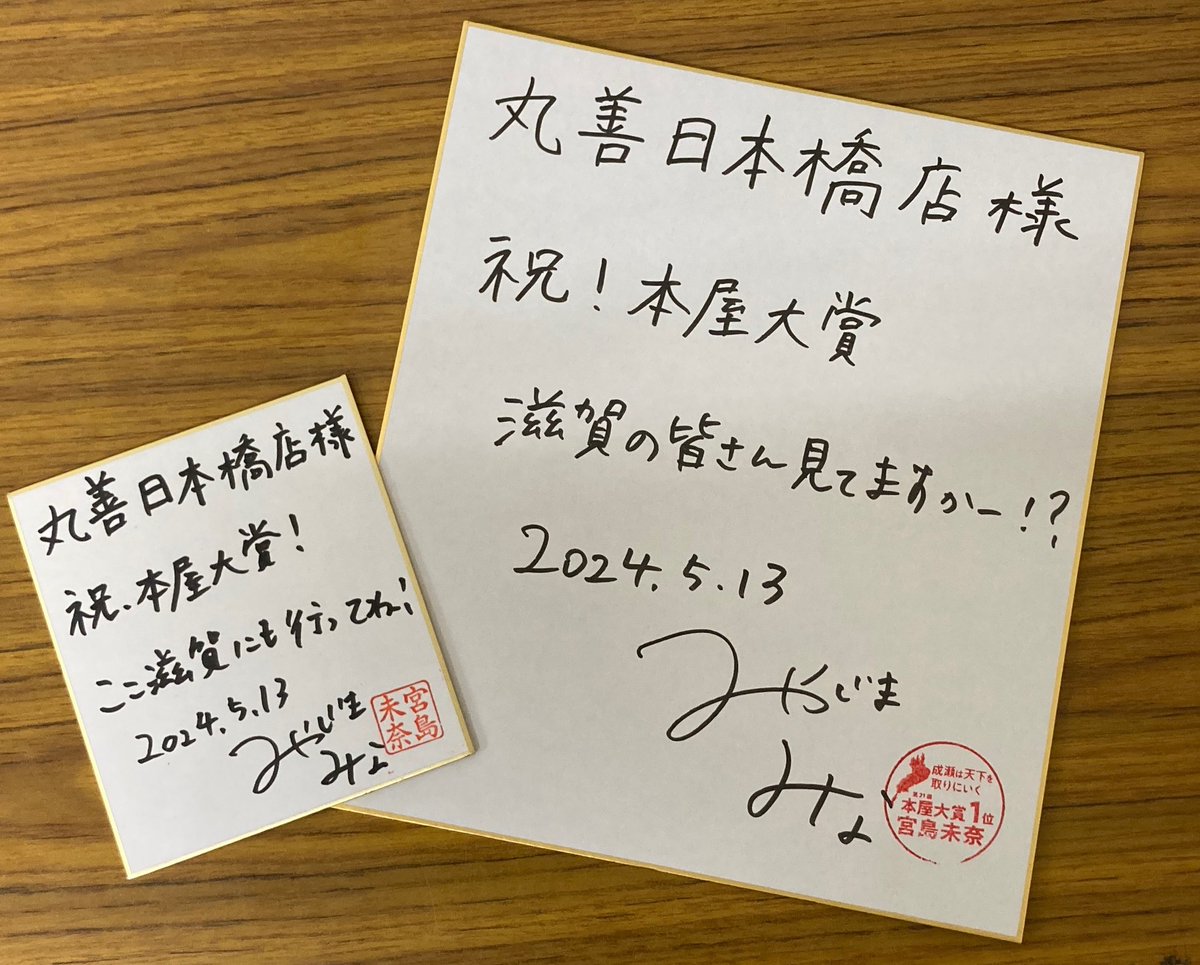 丸善日本橋店様
祝！本屋大賞
滋賀の皆さん見てますかー!?
2024.5.13
みやじま
みな
成瀬は天下を
取りにいく
第21回
本屋大賞1位
宮島未奈
丸善日本橋店様
祝、本屋大賞！
ここ滋賀にも行ってね！
2024.5.13
みやじま
みな
宮島
未奈